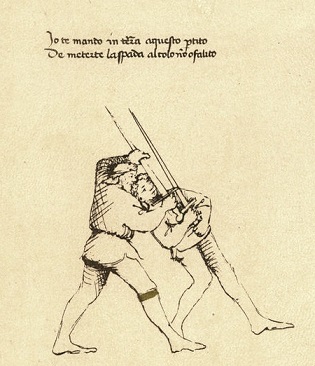 Io te mando in terra aquesto ptito
De meterte la spada al colo nō ò falito